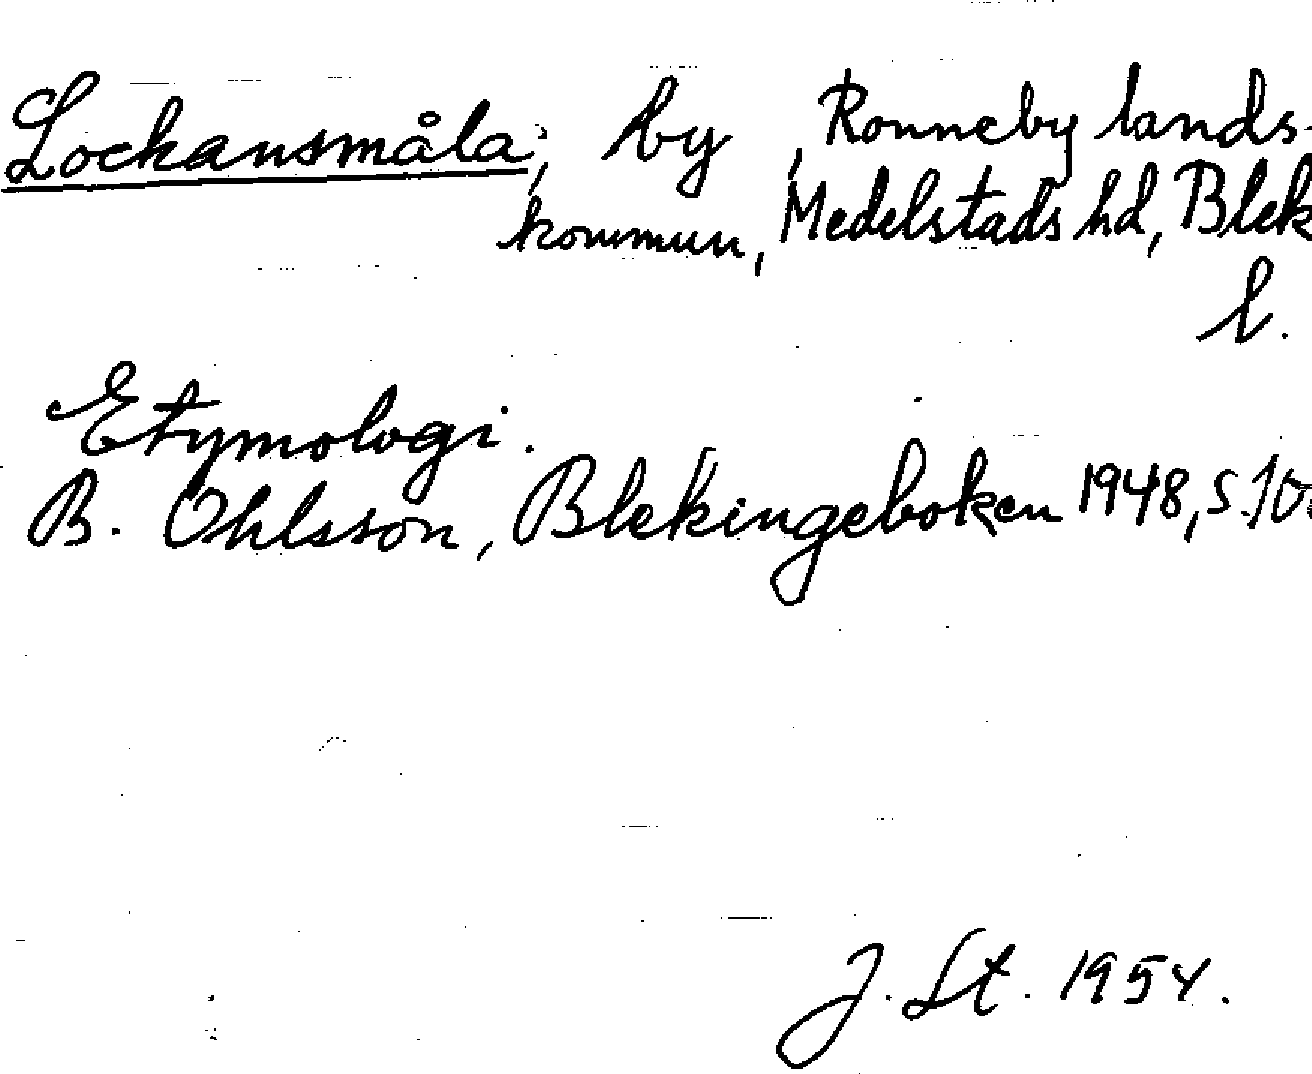 Lockansmåla, by, Ronneby lands-
kommun, Medelstads hd, Blek
l.
Etymologi.
B. Ohlsson, Blekingeboken 1948, s.
J. St. 1954.